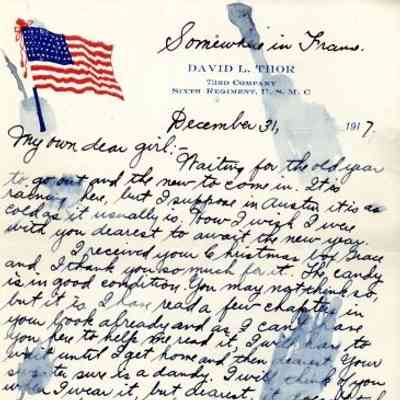 Somewhere in France.
DAVID L. THOR
73RD COMPANY
SIXTH REGIMENT, U. S. M. C
December 31, 1917.
My own dear girl:-
Waiting for the old year
to go out and the new to come in. It is
raining here, but I suppose in Austin it is as
cold as it usually is. How I wish I were
with you dearest to await the new year.
I received your Christmas box Grace
and I thank you so much for it. The candy
is in good condition. You may not think so,
but it is. I have read a few chapters in
your book already and as I can't have
you here to help me read it, I will have to
wait until I get home and then dearest. Your
sweater sure is a dandy. I will think of you
when I wear it, but dearest, it